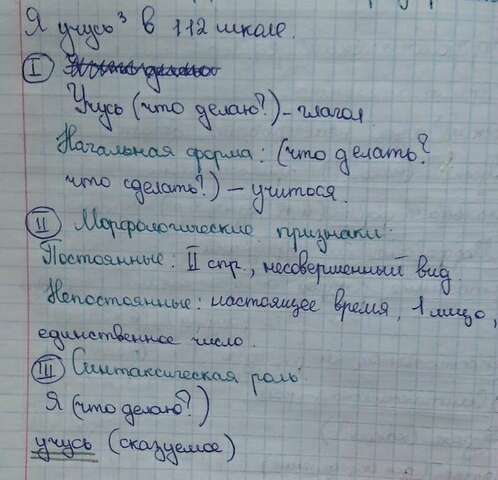 Я учусь³ в 112 школе.
I
Учусь (что делаю?) – глагол
Начальная форма: (что делать?
что сделать?) – учиться.
II Морфологические признаки:
Постоянные: II спр., несовершенный вид
Непостоянные: настоящее время, 1 лицо,
единственное число.
III Синтаксическая роль
Я (что делаю?)
учусь (сказуемое)